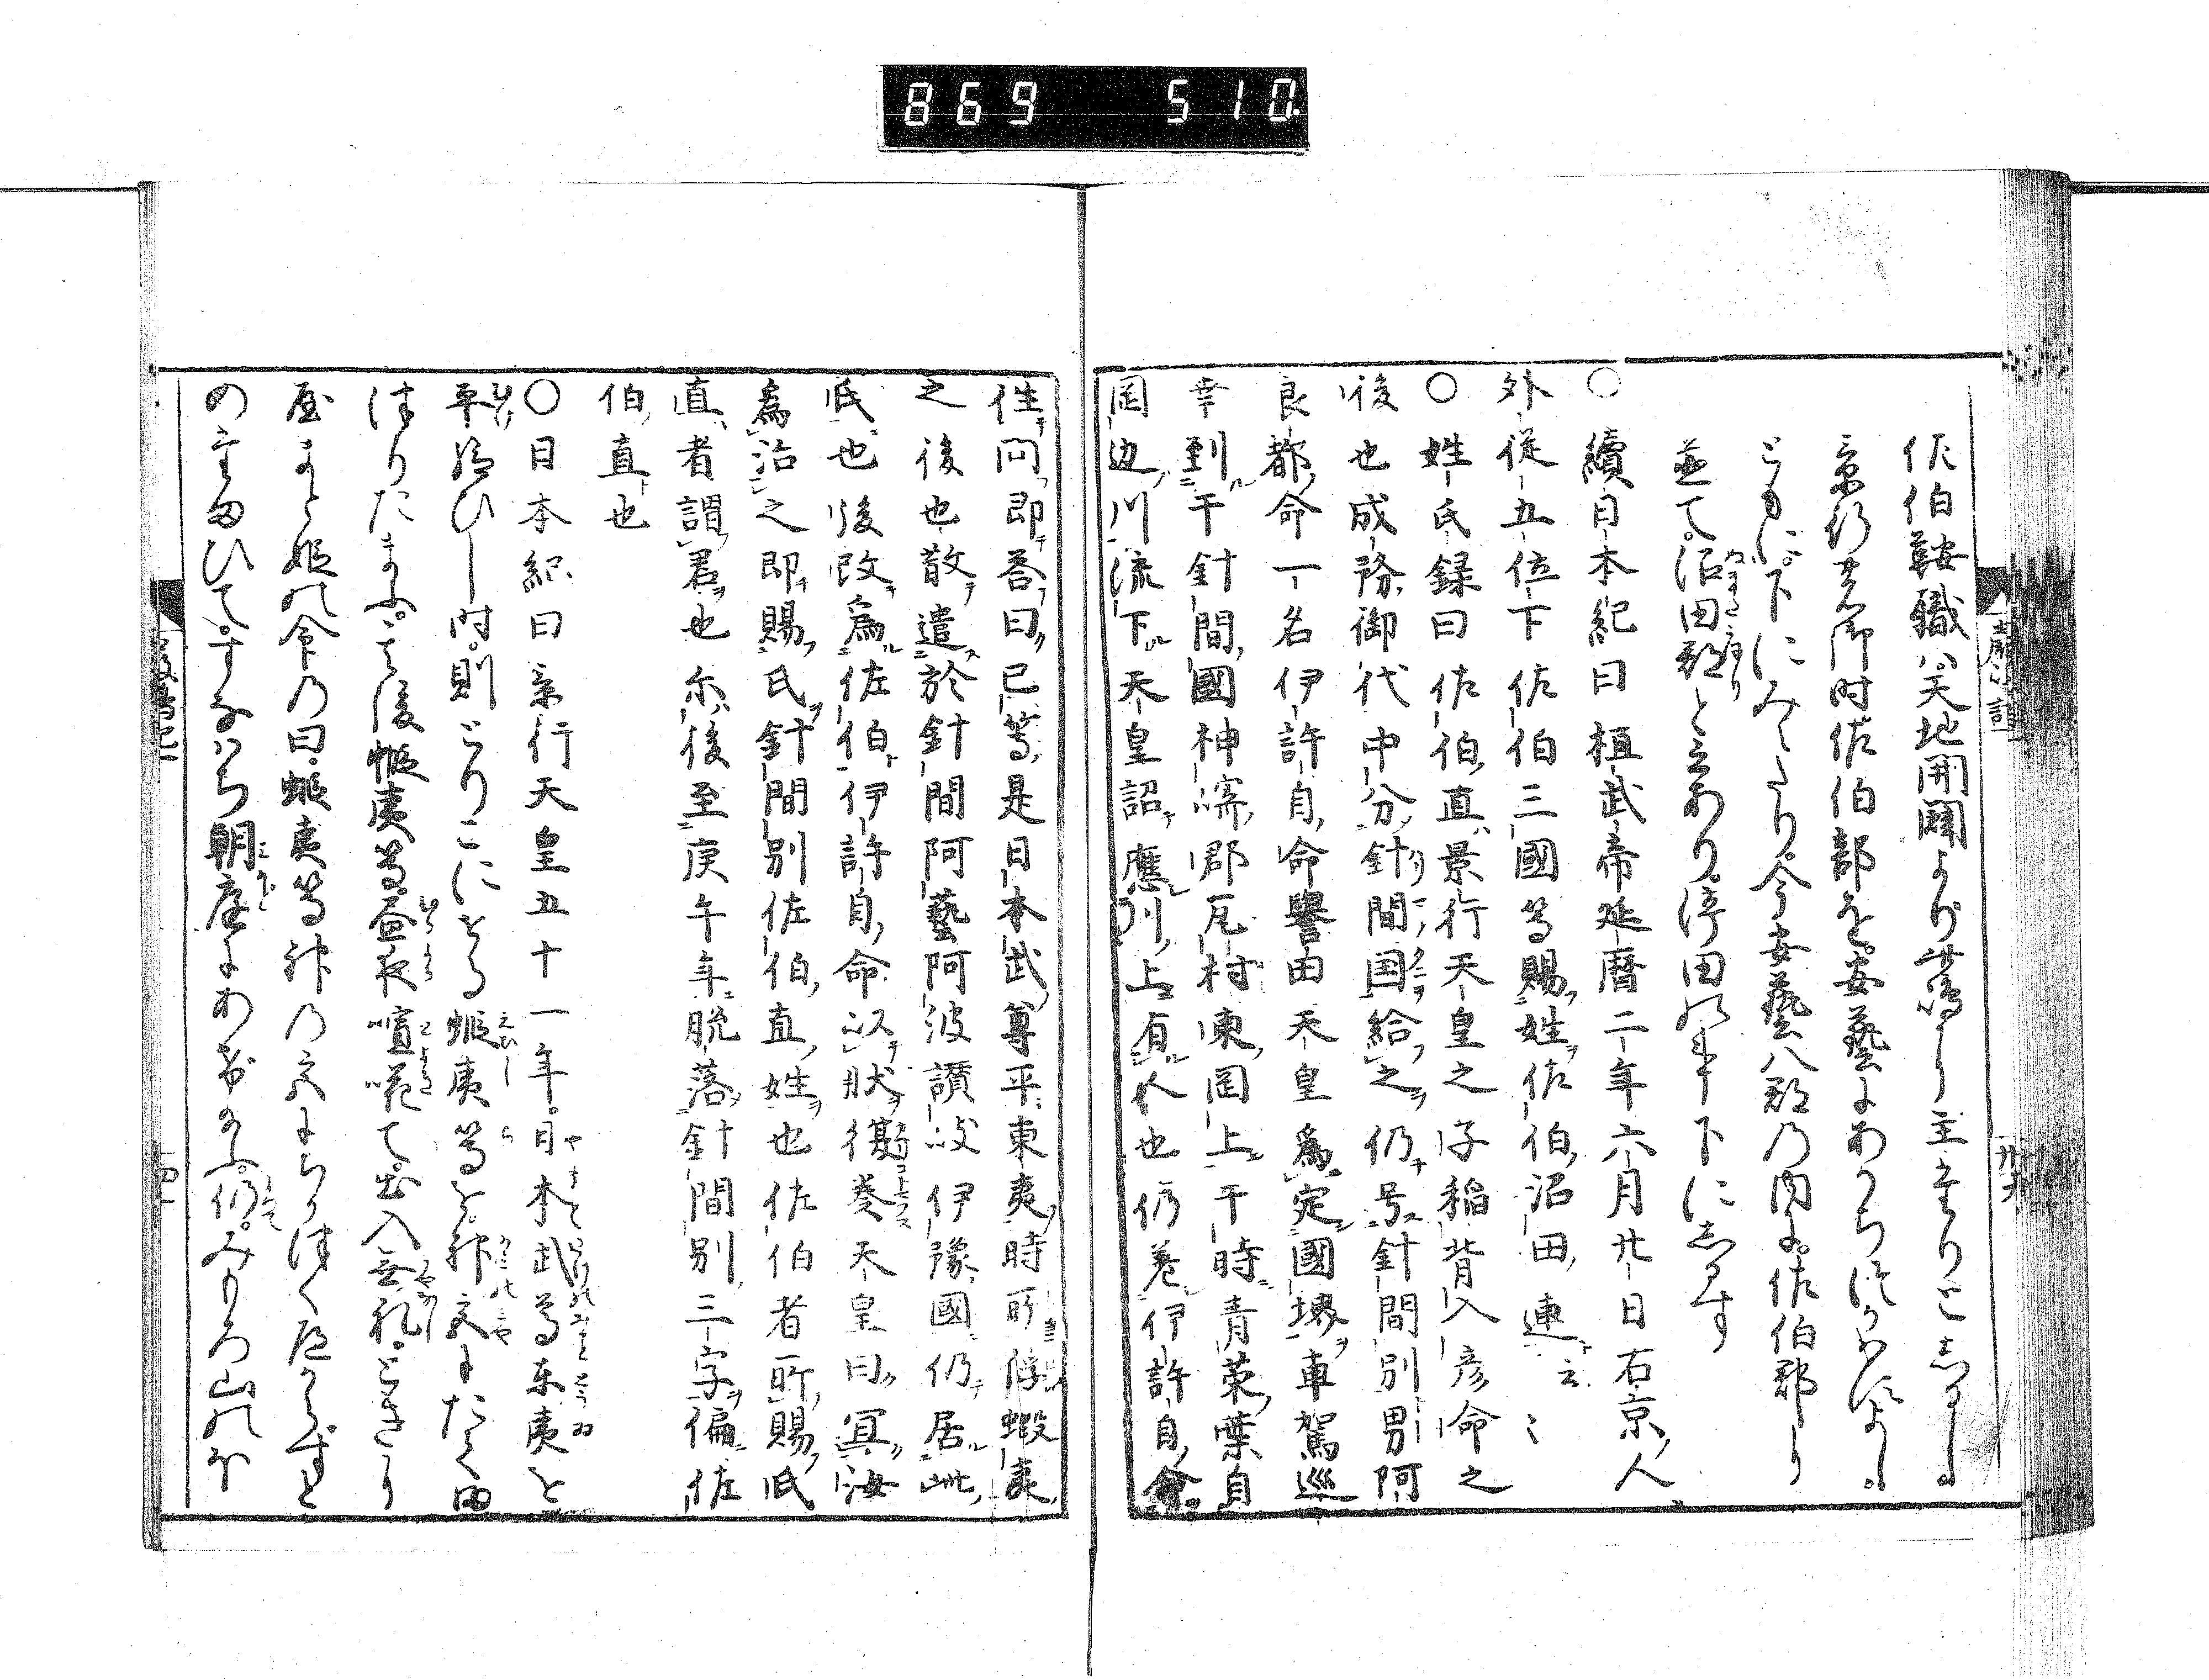 869 510
佐伯鞍職ハ天地開闢より此嶋の主なりとしるし。
景行天皇御时佐伯部を。安藝にわかちつかはせしよし。
ともに下にみえたり。今安藝八郡乃内に。佐伯郡あり
並て。沼田郡と云あり。沼田の事下にしるす
○續日本紀曰桓武帝延暦二年六月廿日右京人
外從五位下佐伯三國等賜姓佐伯沼田連云〻
○姓氏録曰佐伯直景行天皇之子稲背入彦命之
後也成務御代中分針間国給之仍号針間別男阿
良都命一名伊許自命譽田天皇爲定國堺車駕巡
幸到于針間國神﨑郡瓦村東岡上于時青菜葉自
岡边川流下天皇詔應川上有人也仍差伊許自命
徃问即荅曰己等是日本武尊平東夷時所俘蝦夷
之後也散遣於針間阿藝阿波讃岐伊豫國仍居此
氏也後改爲佐伯伊許自命以状復奏天皇曰冝汝
為治之即賜氏針間別佐伯直姓也佐伯者所賜氏
直者謂君也尓後至庚午年脱落針間別三字偏佐
伯直也
○日本紀曰景行天皇五十一年。日本武尊东夷を
平給ひし时。則とりこにせる蝦夷等を。神宮にたて田
津りたまふ。其後蝦夷等。昼夜喧嘩て。出入無礼。ときこり
屋まと姫の命乃曰。蝦夷等神乃宮にちかつくへからずと
のたまひて。すなハち朝庭にあけたまふ。仍。みもろ山のほ